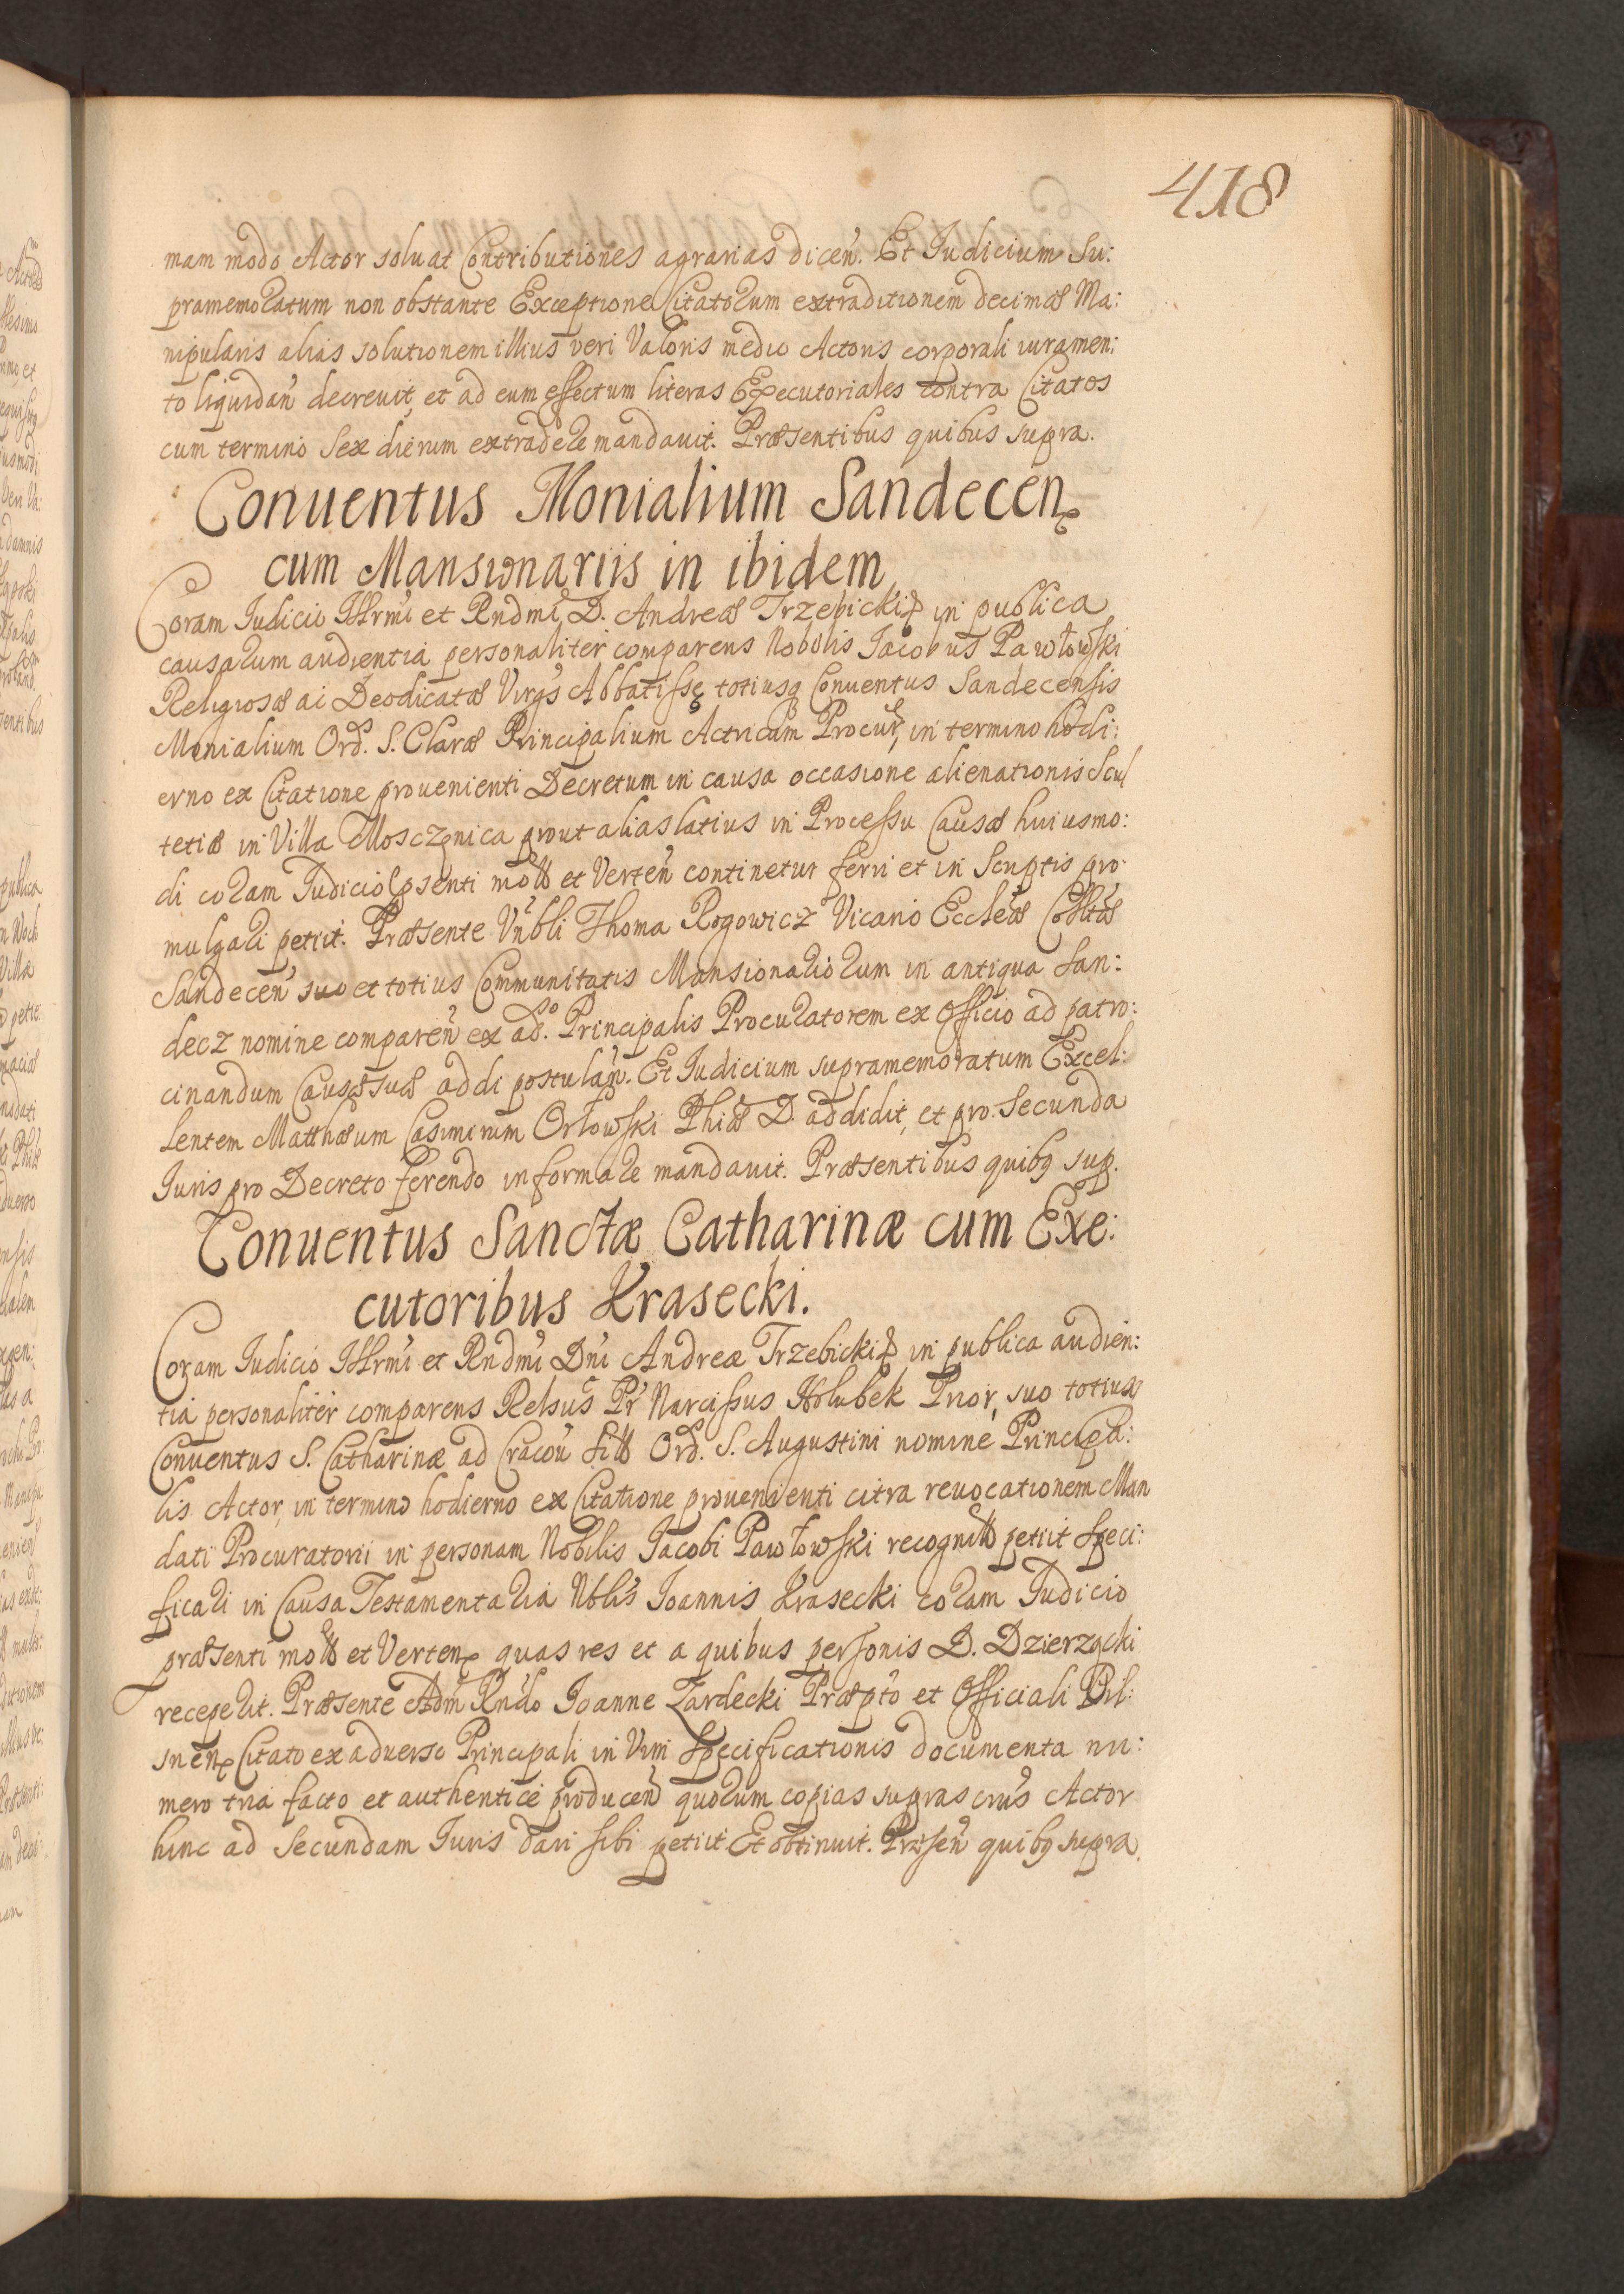 418
mam modo Actor soluat Contributiones agrarias dicen. Et Iudicium Su:
pramemoratum non obstante Exceptione Citatorum extraditionem decimæ Ma:
nipularis alias solutionem illius veri Valoris medio Actoris corporali iuramen:
to liquidan decreuit, et ad eum effectum literas Executoriales contra Citatos
cum termino Sex dierum extradere mandauit. Præsentibus quibus supra.
Conuentus Monialium Sandecen
cum Mansionariis in ibidem
Coram Iudicio Illrmi et Rndmi D. Andreæ Trzebicki in publica
causarum audientia personaliter comparens Nobilis Iacobus Pawłowski
Religiosæ ai Deodicatæ Virgs Abbatissę totiusq Conuentus Sandecensis
Monialium Ord. S. Claræ Principalium Actricum Procur, in termino hodi:
erno ex Citatione prouenienti Decretum in causa occasione alienationis Scul
tetiæ in Villa Moscznica prout alias latius in Processu Causæ huiusmo:
di coram Iudicio psenti mołł et Verten continetur ferri et in Scriptis pro
mulgari petiit. Præsente Vnbli Thoma Rogowicz Vicario Eccleæ Colltæ
Sandecen suo et totius Communitatis Mansionariorum in antiqua San:
decz nomine comparen ex adso. Principalis Procuratorem ex Officio ad patro:
cinandum Causæ suæ addi postulan. Et Iudicium supramemoratum Excel:
lentem Matthæum Casimirum Orłowski Phiæ D. addidit, et pro Secunda
Iuris pro Decreto ferendo informare mandauit. Præsentibus quibq sup.
Conuentus Sanctæ Catharinæ cum Exe:
cutoribus Krasecki.
Coram Iudicio Illrmi et Rndmi Dni Andreæ Trzebicki in publica audien:
tia personaliter comparens Relsus Pr Narcissus Holubek Prior, suo totiusq
Conuentus S. Catharinæ ad Cracou Ord. S. Augustini nomine Principa:
lis Actor, in termino hodierno ex Citatione prouenienti citra reuocationem Man
dati Procuratorii in personam Nobilis Iacobi Pawłowski recogn petiit Speci:
ficari in Causa Testamentaria Nblis Ioannis Krasecki coram Iudicio
præsenti mołł et Verten quas res et a quibus personis D. Dzierzącki
receperit. Præsente Adm Rndo Ioanne Zardecki Præpto et Officiali Pil:
snen Citato ex aduerso Principali in Vim Specificationis documenta nu:
mero tria facto et authentice producen quorum copias suprascrius Actor
hinc ad Secundam Iuris dari sibi petiit Et obtinuit. Præsen quibq supra.